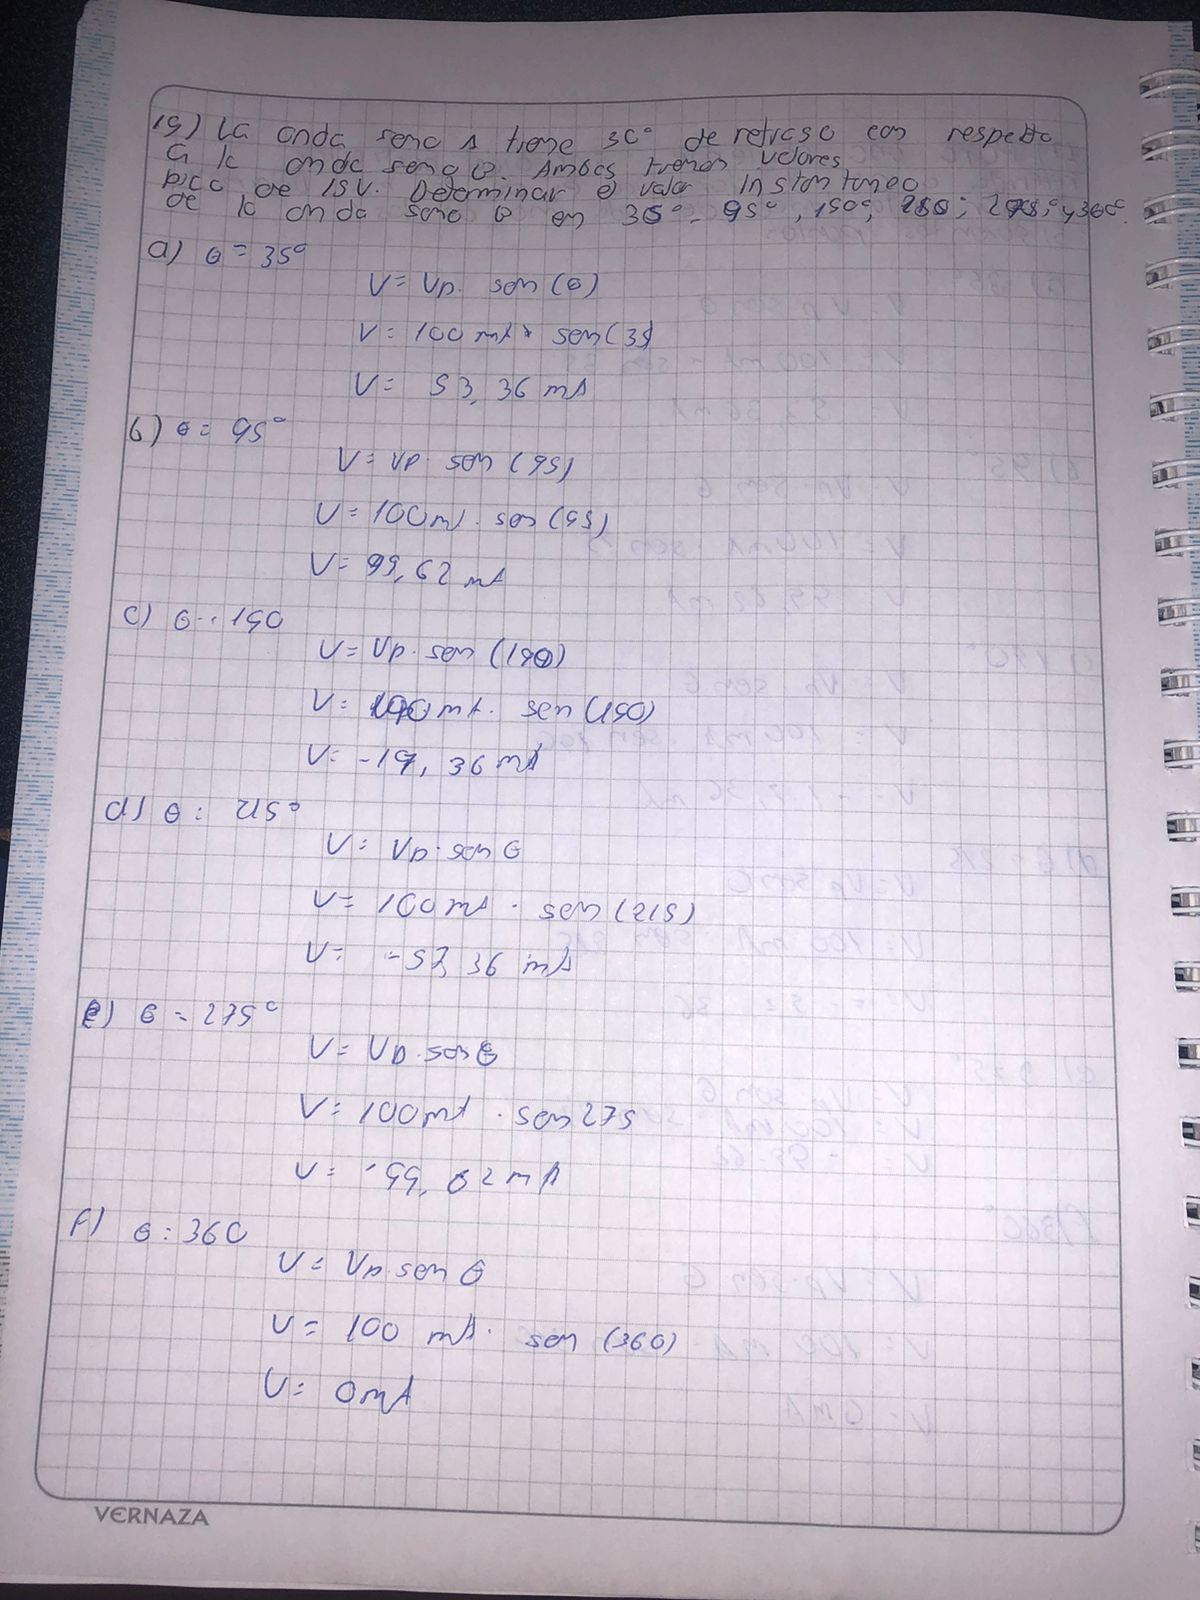 15) La onda seno A tiene 30° de retraso con respecto
a la onda seno B. Ambas tienen valores
pico de 15V. Determinar el valor Instantaneo
de la onda seno B en 30°, 95°, 150°, y 360°.
a) θ = 35°
V = Vp. sen (θ)
V = 100 mA * sen(35)
V = 53,36 mA
b) θ = 95°
V = Vp. sen (95)
V = 100mA. sen (95)
V = 99,62 mA
c) θ = 190
V = Vp. sen (190)
V = 100mA. sen (190)
V = -17,36 mA
d) θ = 215°
V = Vp. sen θ
V = 100mA. sen (215)
V = -57,36 mA
e) θ = 275°
V = Vp. sen θ
V = 100mA. sen 275
V = -99,62 mA
f) θ = 360
V = Vp. sen θ
V = 100 mA. sen (360)
V = 0mA
VERNAZA